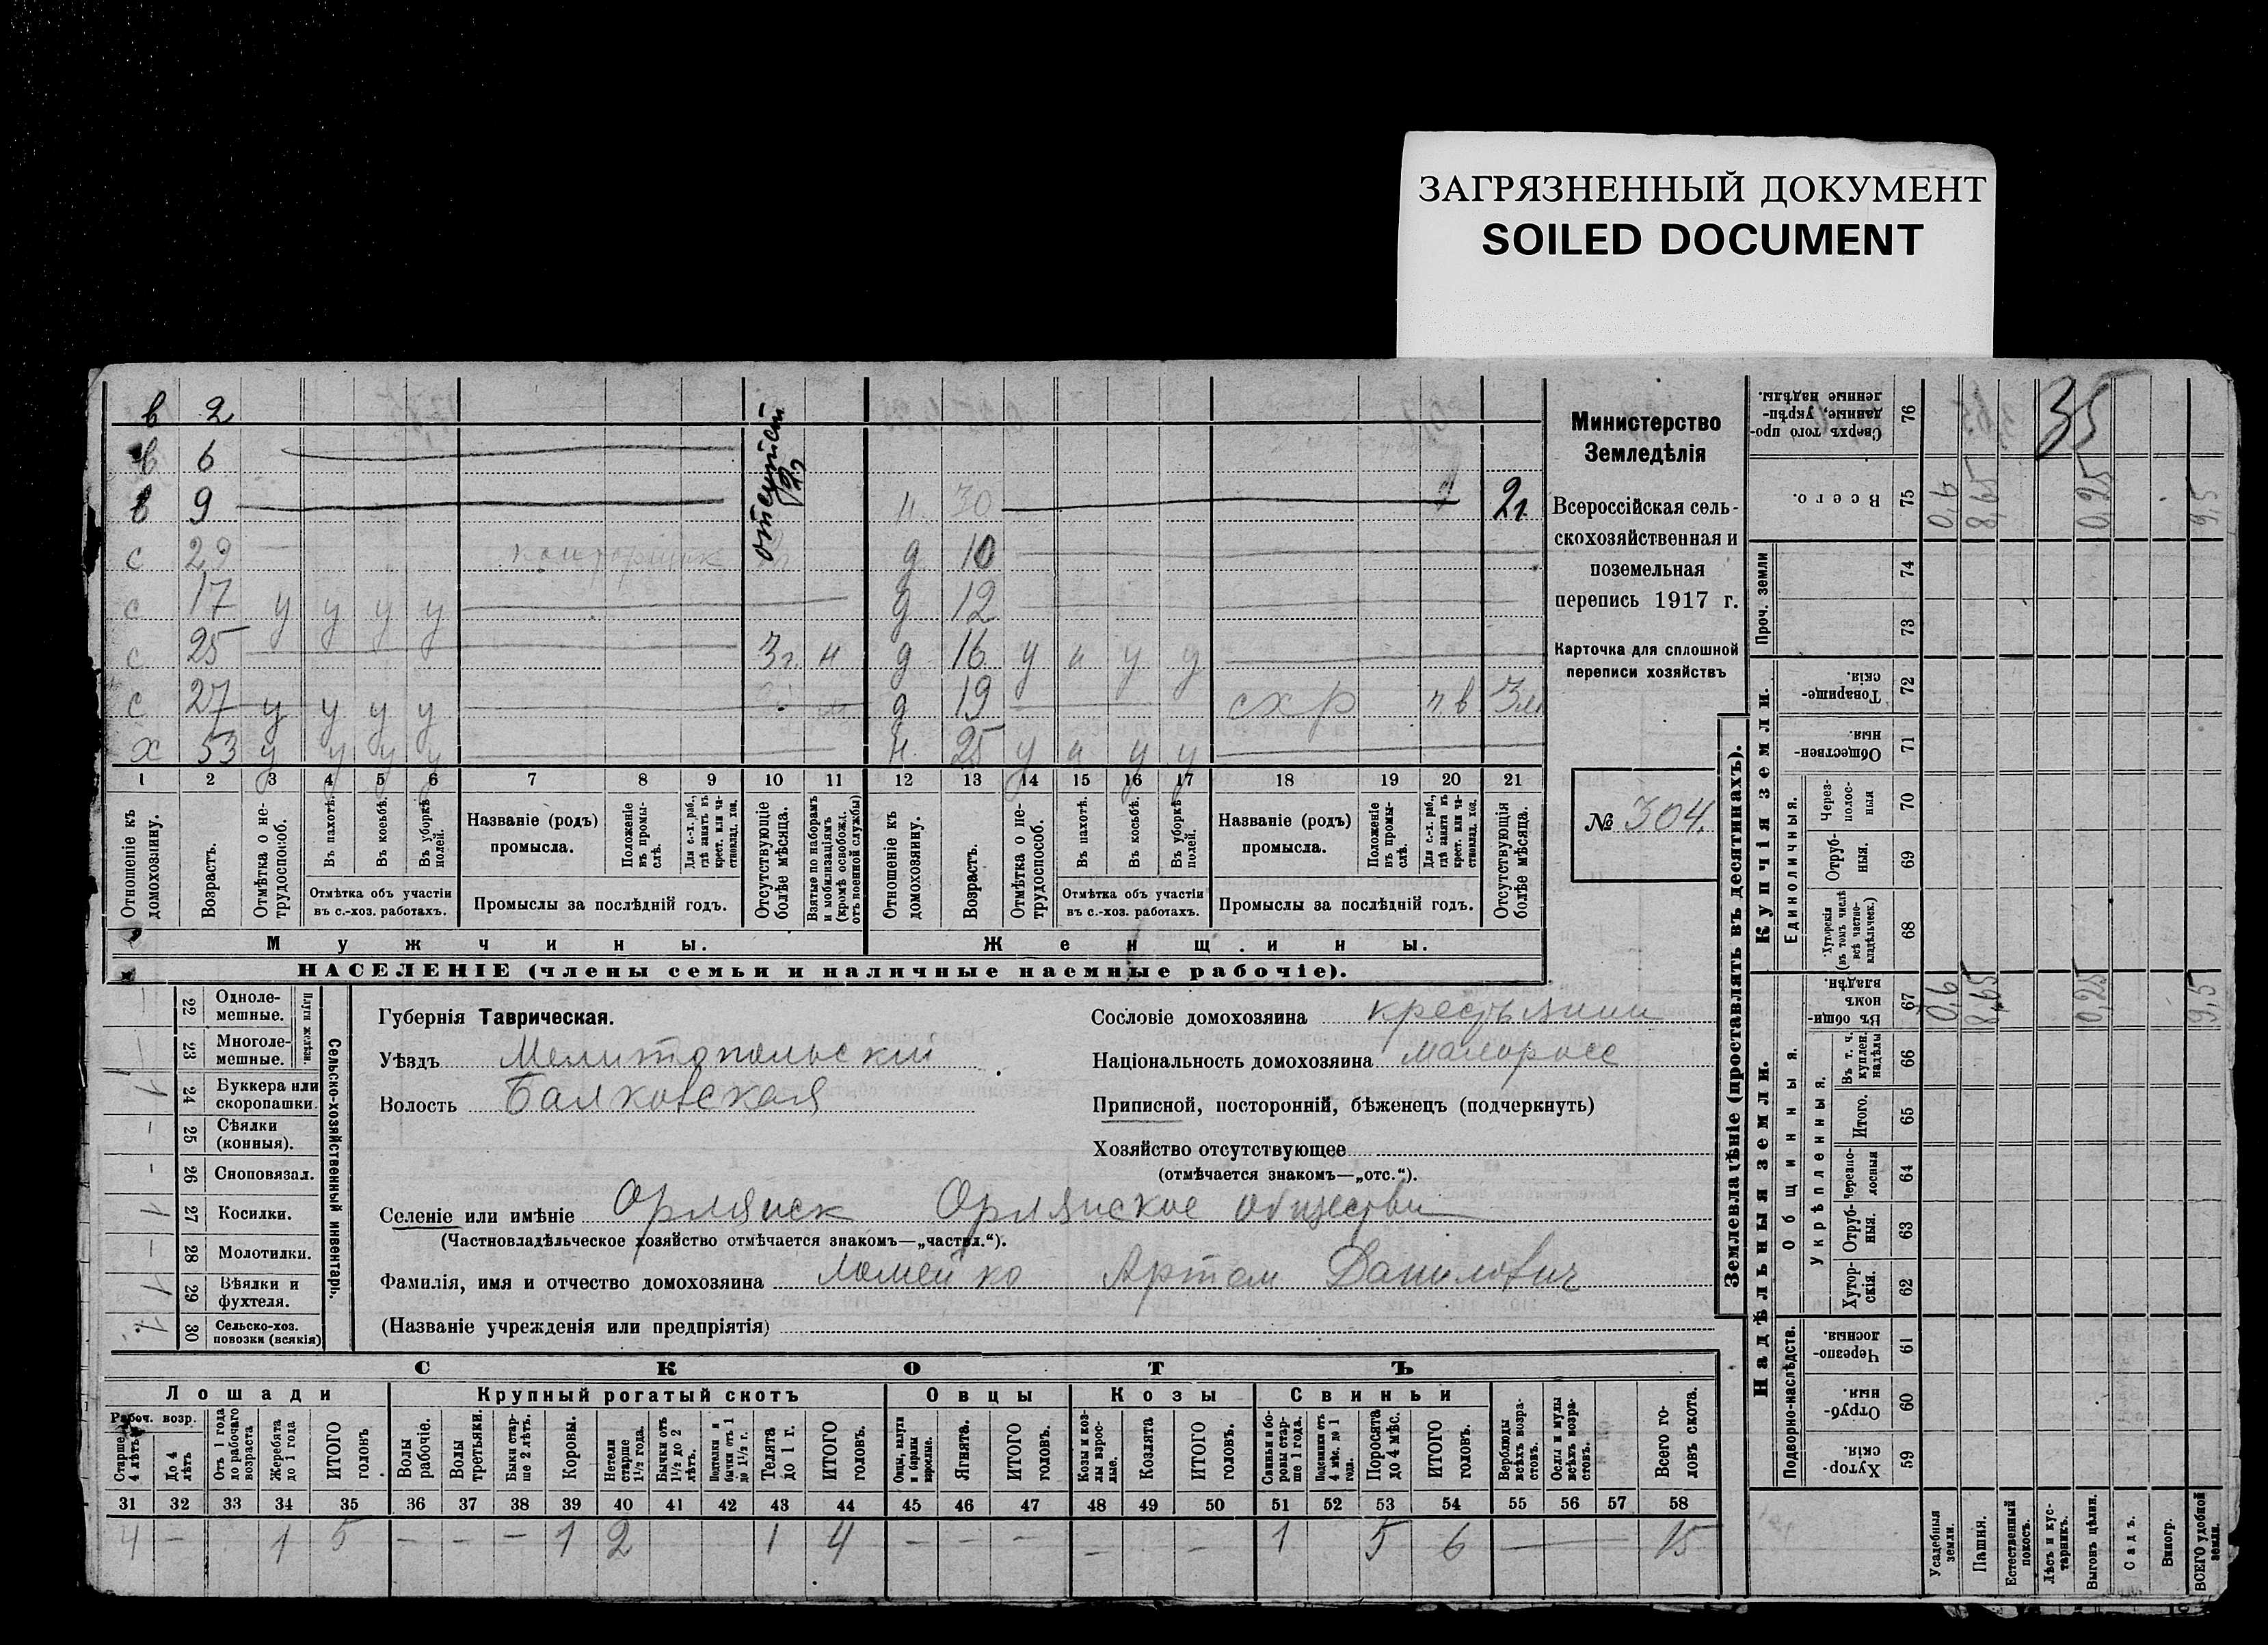 ЗАГРЯЗНЕННЫЙ ДОКУМЕНТ
SOILED DOCUMENT
в 2
в 6
в 9 н. 30 2г.
с 29 д 10
с 17 у у у у д 12
с 25 3г. н д 16 у н у у
с 27 у у у у д 19 схр п.в 3м
х 53 у у у у н. 25 у н у у
отсутст
1 2 3 4 5 6 7 8 9 10 11 12 13 14 15 16 17 18 19 20 21
Отношеніе къ домохозяину.
Возрастъ.
Отмѣтка о не-трудоспособ.
Въ пахотѣ.
Въ косьбѣ.
Въ уборкѣ полей.
Отмѣтка объ участіи въ с.-хоз. работахъ.
Названіе (родъ) промысла.
Положеніе въ промы-слѣ.
Для с.-х. раб., гдѣ занятъ въ крест. или ча-стновлад. хоз.
Промыслы за послѣдній годъ.
Отсутствующіе болѣе мѣсяца.
Взятые по наборамъ и мобилизаціямъ (кромѣ освобожд. отъ военной службы)
Отношеніе къ домохозяину.
Возрастъ.
Отмѣтка о не-трудоспособ.
Въ пахотѣ.
Въ косьбѣ.
Въ уборкѣ полей.
Отмѣтка объ участіи въ с.-хоз. работахъ.
Названіе (родъ) промысла.
Положеніе въ промы-слѣ.
Для с.-х. раб., гдѣ занята въ крест. или ча-стновлад. хоз.
Промыслы за послѣдній годъ.
Отсутствующія болѣе мѣсяца.
Мужчины. Женщины.
НАСЕЛЕНІЕ (члены семьи и наличные наемные рабочіе).
Министерство
Земледѣлія
Всероссійская сель-
скохозяйственная и
поземельная
перепись 1917 г.
Карточка для сплошной
переписи хозяйствъ
№ 304.
Сельско-хозяйственный инвентарь.
Плуги желѣзн.
22 Одноле-мешные. —
23 Многоле-мешные. —
24 Буккера или скоропашки. 1
25 Сѣялки (конныя). —
26 Сноповязал. -
27 Косилки. 1
28 Молотилки. —
29 Вѣялки и фухтеля. 1
30 Сельско-хоз. повозки (всякія)
Губернія Таврическая.
Уѣздъ Мелитопольскій
Волость Балковская
Сословіе домохозяина крестьянин
Національность домохозяина малоросс
Приписной, посторонній, бѣженецъ (подчеркнуть)
Хозяйство отсутствующее
(отмѣчается знакомъ—„отс.“).
Селеніе или имѣніе Орлянск Орлянское общество
(Частновладѣльческое хозяйство отмѣчается знакомъ—„частвл.“).
Фамилія, имя и отчество домохозяина Ломейко Артем Данилович
(Названіе учрежденія или предпріятія)
СКОТЪ
Лошади Крупный рогатый скотъ Овцы Козы Свиньи
Рабоч. возр.
Старше 4 лѣтъ
До 4 лѣтъ
Отъ 1 года до рабочаго возраста
Жеребята до 1 года
ИТОГО головъ
Волы рабочіе.
Волы третьяки.
Быки стар-ше 2 лѣтъ.
Коровы.
Нетели старше 1½ года.
Бычки отъ 1½ до 2 лѣтъ.
Подтелки и бычки отъ 1 до 1½ г.
Телята до 1 г.
ИТОГО головъ.
Овцы, валухи и бараны взрослые.
Ягнята.
ИТОГО головъ.
Козы и коз-лы взрос-лые.
Козлята
ИТОГО головъ.
Свиньи и бо-ровы стар-ше 1 года.
Подсвинки отъ 4 мѣс. до 1 года.
Поросята до 4 мѣс.
ИТОГО головъ.
Верблюды всѣхъ возра-стовъ.
Ослы и мулы всѣхъ возра-стовъ.
Всего го-ловъ скота.
31 32 33 34 35 36 37 38 39 40 41 42 43 44 45 46 47 48 49 50 51 52 53 54 55 56 57 58
4 — 1 5 — — — 1 2 1 4 — — — — — 1 5 6 — 15
Землевладѣніе (проставлять въ десятинахъ).
Надѣльныя земли. Купчія земли. Проч. земли
Подворно-наслѣдств.
Общинныя.
Укрѣпленныя.
Единоличныя.
Сверхъ того про-данные, укрѣп-ленные надѣлы. 76
Всего. 75 0,6 8,65 0,25 9,5
74
73
Товарище-скія. 72
Обществен-ныя. 71
Через-полос-ныя 70
Отруб-ныя. 69
Хуторскія (въ томъ числѣ всѣ частно-владѣльческ.) 68
Въ общин-номъ владѣн. 67 0,6 8,65 0,25 9,5
Въ т. ч. куплен. надѣлы 66
Итого. 65
Черезпо-лосныя 64
Отруб-ныя. 63
Хутор-скія. 62
Черезпо-лосныя 61
Отруб-ныя. 60
Хутор-скія. 59
Усадебныя земли.
Пашня.
Естественный покосъ.
Лѣсъ и кус-тарникъ.
Выгонъ цѣлин.
Садъ.
Виногр.
ВСЕГО удобной земли.
35